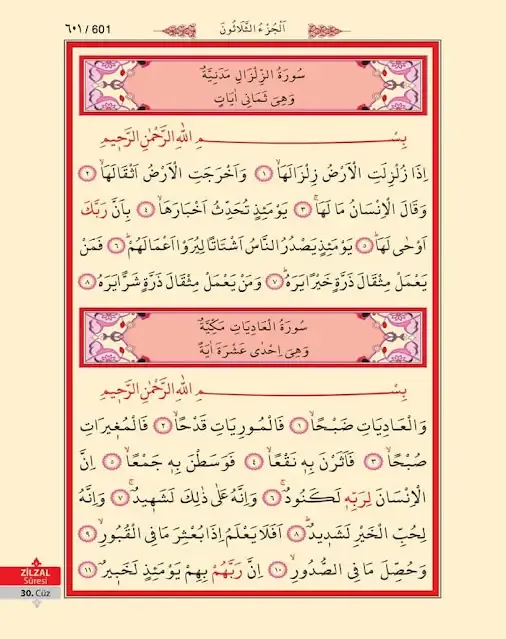 ٦٠١ / 601
اَلْجُزْءُ الثَّلَاثُونَ
سُورَةُ الزِّلْزَالِ مَدَنِيَّةٌ
وَهِيَ ثَمَانِي اٰيَاتٍ
بِسْمِ اللّٰهِ الرَّحْمٰنِ الرَّحٖيمِ
اِذَا زُلْزِلَتِ الْاَرْضُ زِلْزَالَهَاۙ ١ وَاَخْرَجَتِ الْاَرْضُ اَثْقَالَهَاۙ ٢
وَقَالَ الْاِنْسَانُ مَا لَهَاۚ ٣ يَوْمَئِذٍ تُحَدِّثُ اَخْبَارَهَاۙ ٤ بِاَنَّ رَبَّكَ
اَوْحٰى لَهَاۜ ٥ يَوْمَئِذٍ يَصْدُرُ النَّاسُ اَشْتَاتًا لِيُرَوْا اَعْمَالَهُمْۜ ٦ فَمَنْ
يَعْمَلْ مِثْقَالَ ذَرَّةٍ خَيْرًا يَرَهُۜ ٧ وَمَنْ يَعْمَلْ مِثْقَالَ ذَرَّةٍ شَرًّا يَرَهُ ٨
سُورَةُ الْعَادِيَاتِ مَكِّيَّةٌ
وَهِيَ اِحْدٰى عَشْرَةَ اٰيَةً
بِسْمِ اللّٰهِ الرَّحْمٰنِ الرَّحٖيمِ
وَالْعَادِيَاتِ ضَبْحًاۙ ١ فَالْمُورِيَاتِ قَدْحًاۙ ٢ فَالْمُغٖيرَاتِ
صُبْحًاۙ ٣ فَاَثَرْنَ بِهٖ نَقْعًاۙ ٤ فَوَسَطْنَ بِهٖ جَمْعًاۙ ٥ اِنَّ
الْاِنْسَانَ لِرَبِّهٖ لَكَنُودٌۚ ٦ وَاِنَّهُ عَلٰى ذٰلِكَ لَشَهٖيدٌۚ ٧ وَاِنَّهُ
لِحُبِّ الْخَيْرِ لَشَدٖيدٌۜ ٨ اَفَلَا يَعْلَمُ اِذَا بُعْثِرَ مَا فِي الْقُبُورِۙ ٩
وَحُصِّلَ مَا فِي الصُّدُورِۙ ١٠ اِنَّ رَبَّهُمْ بِهِمْ يَوْمَئِذٍ لَخَبٖيرٌ ١١
ZİLZAL
Sûresi
30. Cüz